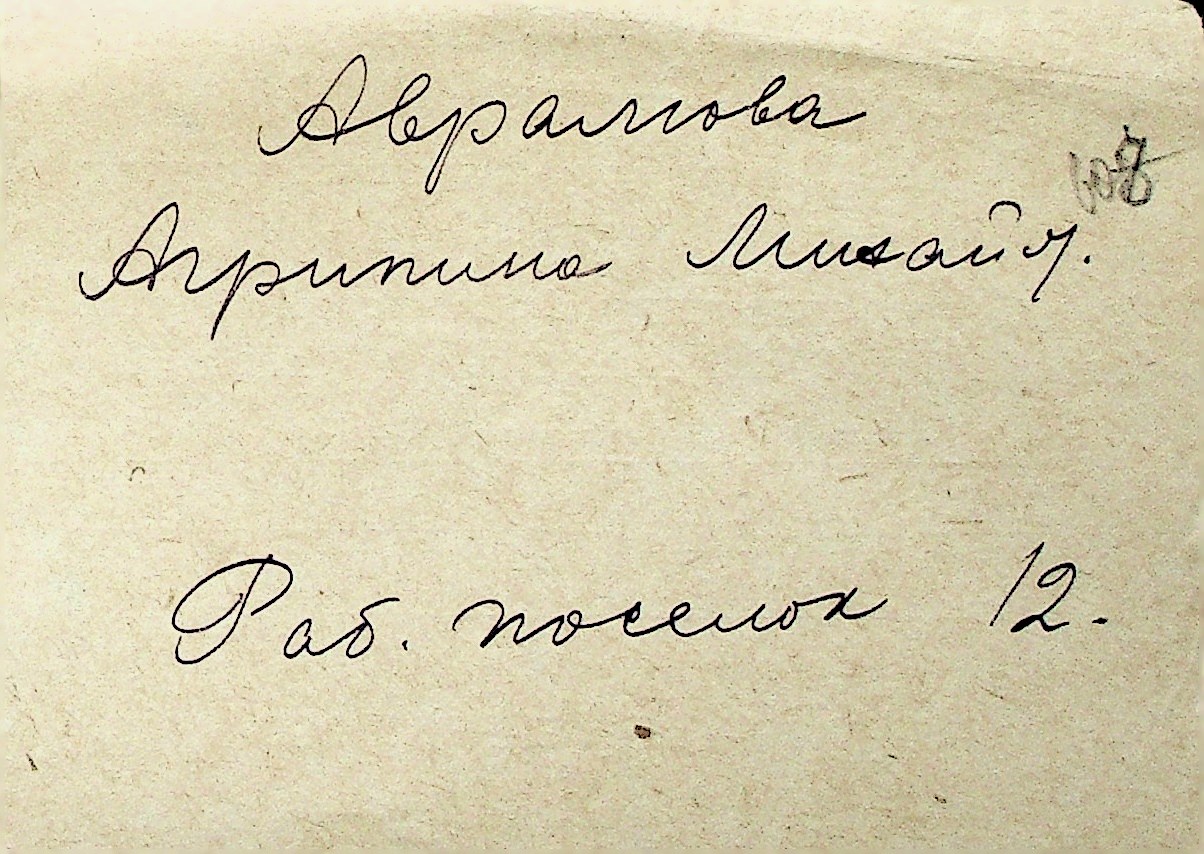 Аврамова
Агрипина Михайл.
Раб. поселок 12.